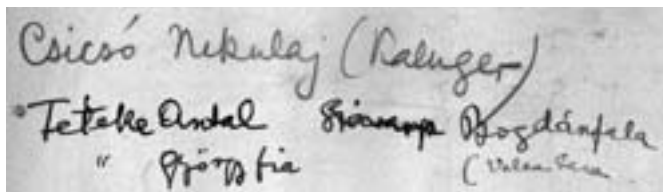 Csicsó Nekulaj (Kaluger)
Teteke Antal Bogdánfala
" György fia (Valea Seca